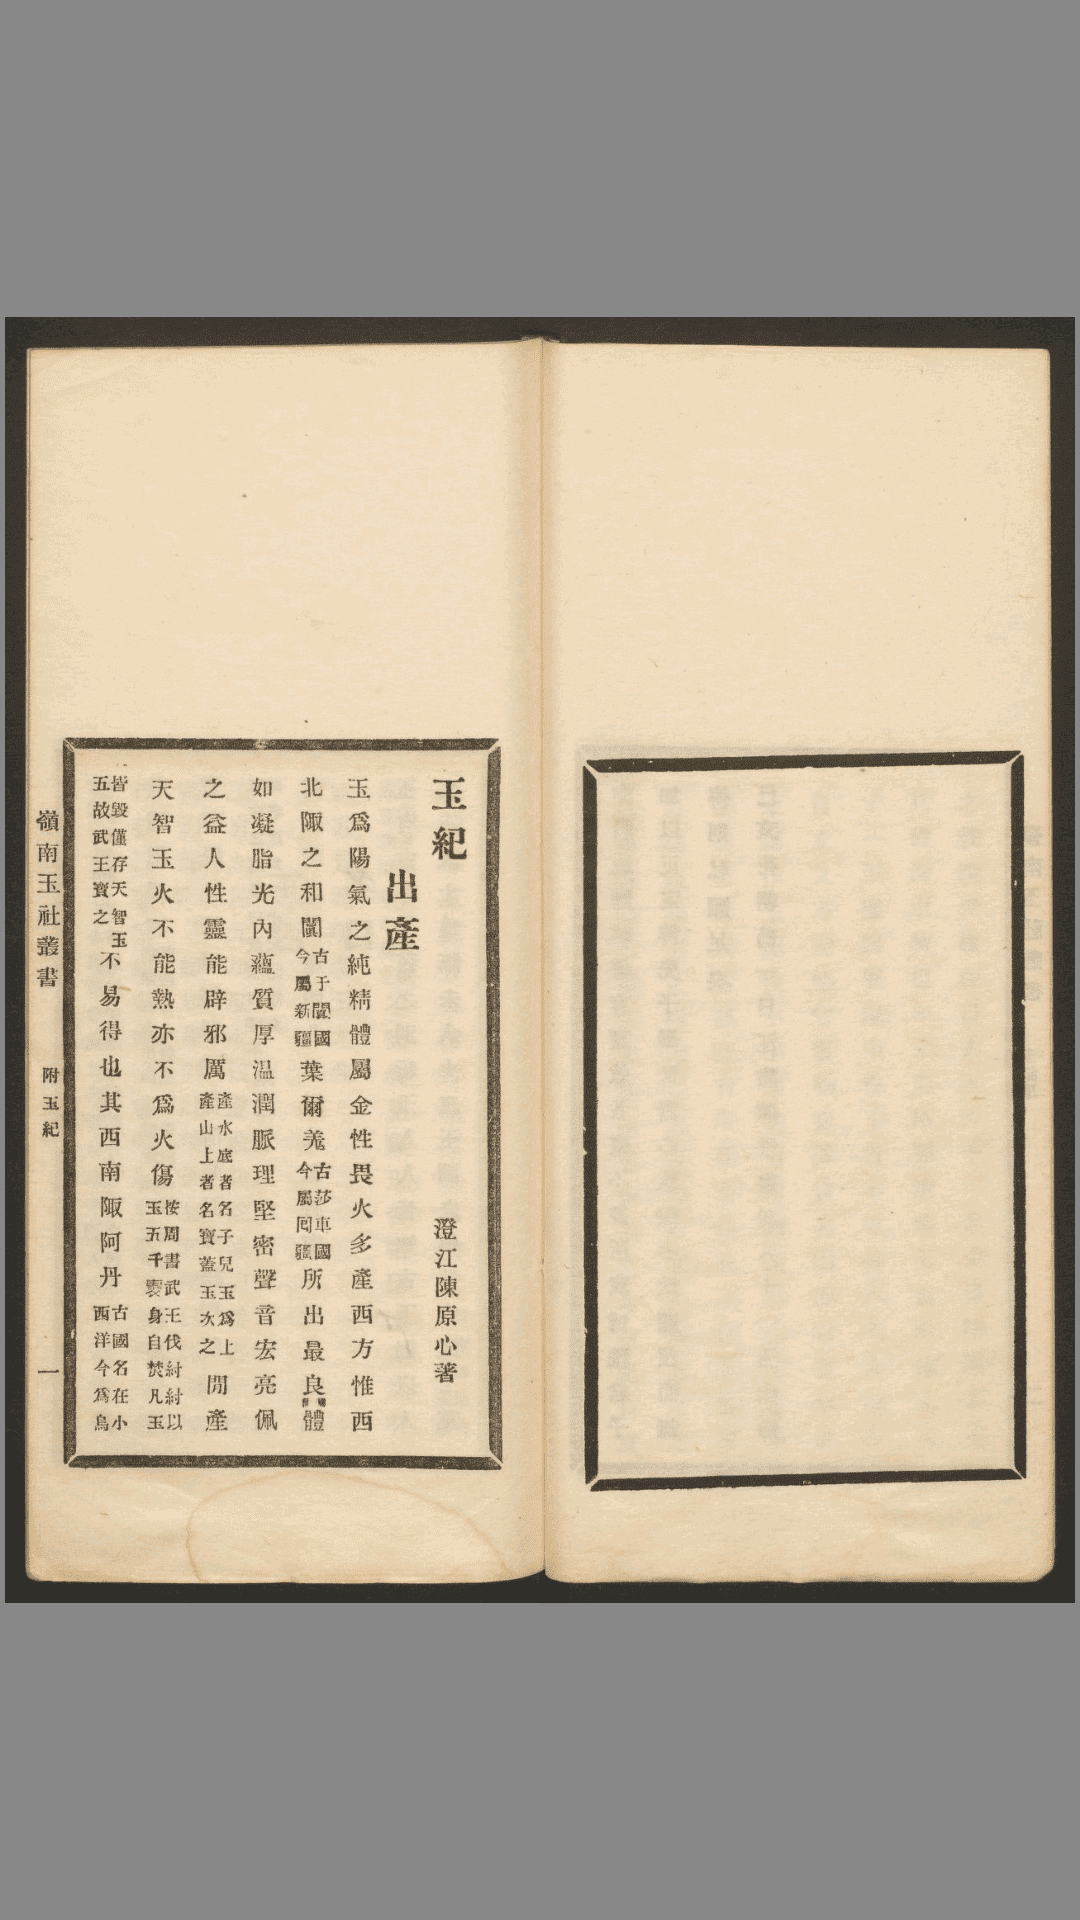 玉紀
澄江陳原心著
出產
玉爲陽氣之純精體屬金性畏火多產西方惟西
北陬之和闐古于闐國今屬新疆葉爾羗古莎車國今屬囘疆所出最良體
如凝脂光內蘊質厚温潤脈理堅密聲音宏亮佩
之益人性靈能辟邪厲產水底者名子兒玉爲上產山上者名寶蓋玉次之閒產
天智玉火不能熱亦不爲火傷按周書武王伐紂紂以玉五千褁身自焚凡玉
皆毀僅存天智玉五故武王寳之不易得也其西南陬阿丹古國名在小西洋今爲烏
嶺南玉社叢書
附玉紀
一